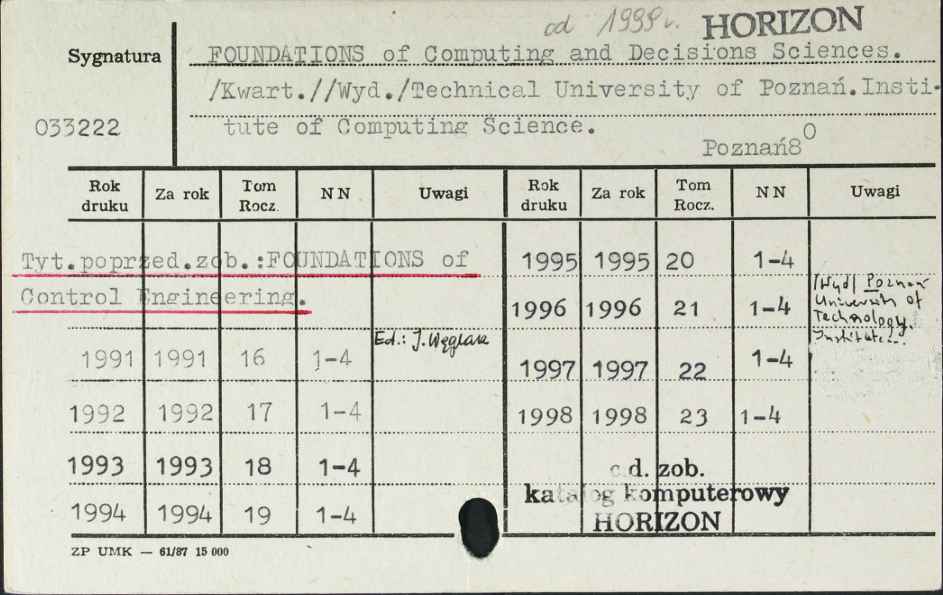 od 1999 r. HORIZON
Sygnatura
FOUNDATIONS of Computing and Decisions Sciences.
/Kwart.//Wyd./Technical University of Poznań.Insti-
033222
tute of Computing Science.
Poznań8⁰
Rok druku Za rok Tom Rocz. NN Uwagi Rok druku Za rok Tom Rocz. NN Uwagi
Tyt.poprzed.zob.:FOUNDATIONS of
Control Engineering.
1995 1995 20 1-4
1996 1996 21 1-4
/Wyd/ Poznań
University of
Technology.
Institute...
Ed.: J. Węglarz
1991 1991 16 1-4
1997 1997 22 1-4
1992 1992 17 1-4
1998 1998 23 1-4
1993 1993 18 1-4
c.d. zob.
katalog komputerowy
HORIZON
1994 1994 19 1-4
ZP UMK — 61/87 15 000